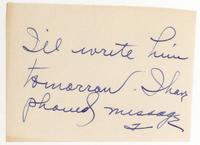 I'll write him
tomorrow. Than
phoned message